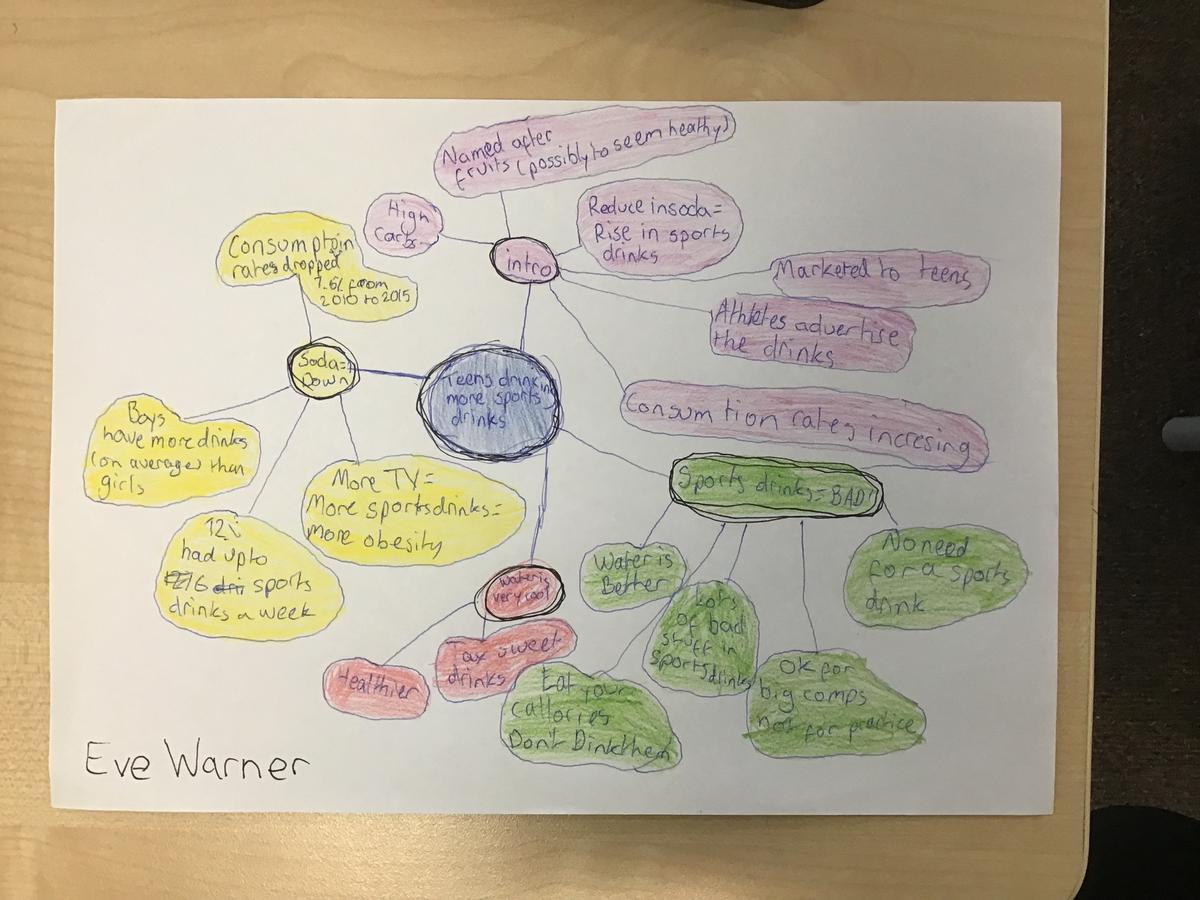 Named after
fruits (possibly to seem heathy)
High
Carbs
Reduce in soda=
Rise in sports
drinks
intro
Marketed to teens
Athletes advertise
the drinks
Consumtion rates incresing
Consumptoin
rates dropped
from
2010 to 2015
Soda=
Down
Teens drinking
more sports
drinks
Boys
have more drinks
(on average) than
girls
More TV=
More sportsdrinks=
more obesity
had up to
16 sports
drinks a week
Sports drinks=BAD!
Water is
Bether
Lots
of bad
stuff in
sportsdrinks
No need
for a sports
drink
OK for
big comps
not for practice
Eat your
callories
Don't Dinkthem
Water is
very cool
Healthier
Tax sweet
drinks
Eve Warner